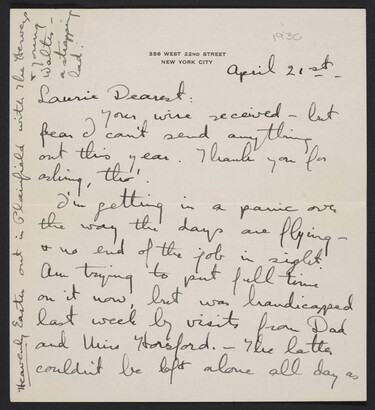 1930
356 WEST 22ND STREET
NEW YORK CITY
April 21st -
Laurie Dearest:
Your wire received - but
fear I can't send anything
out this year. Thank you for
asking, tho'.
I'm getting in a panic over
the way the days are flying -
& no end of the job in sight.
Am trying to put full time
on it now, but was handicapped
last week by visits from Dad
and Miss Horsford. - The latter
couldn't be left alone all day as
Heavenly Easter out in Plainfield with the
& young
Walter -
a strapping
lad!